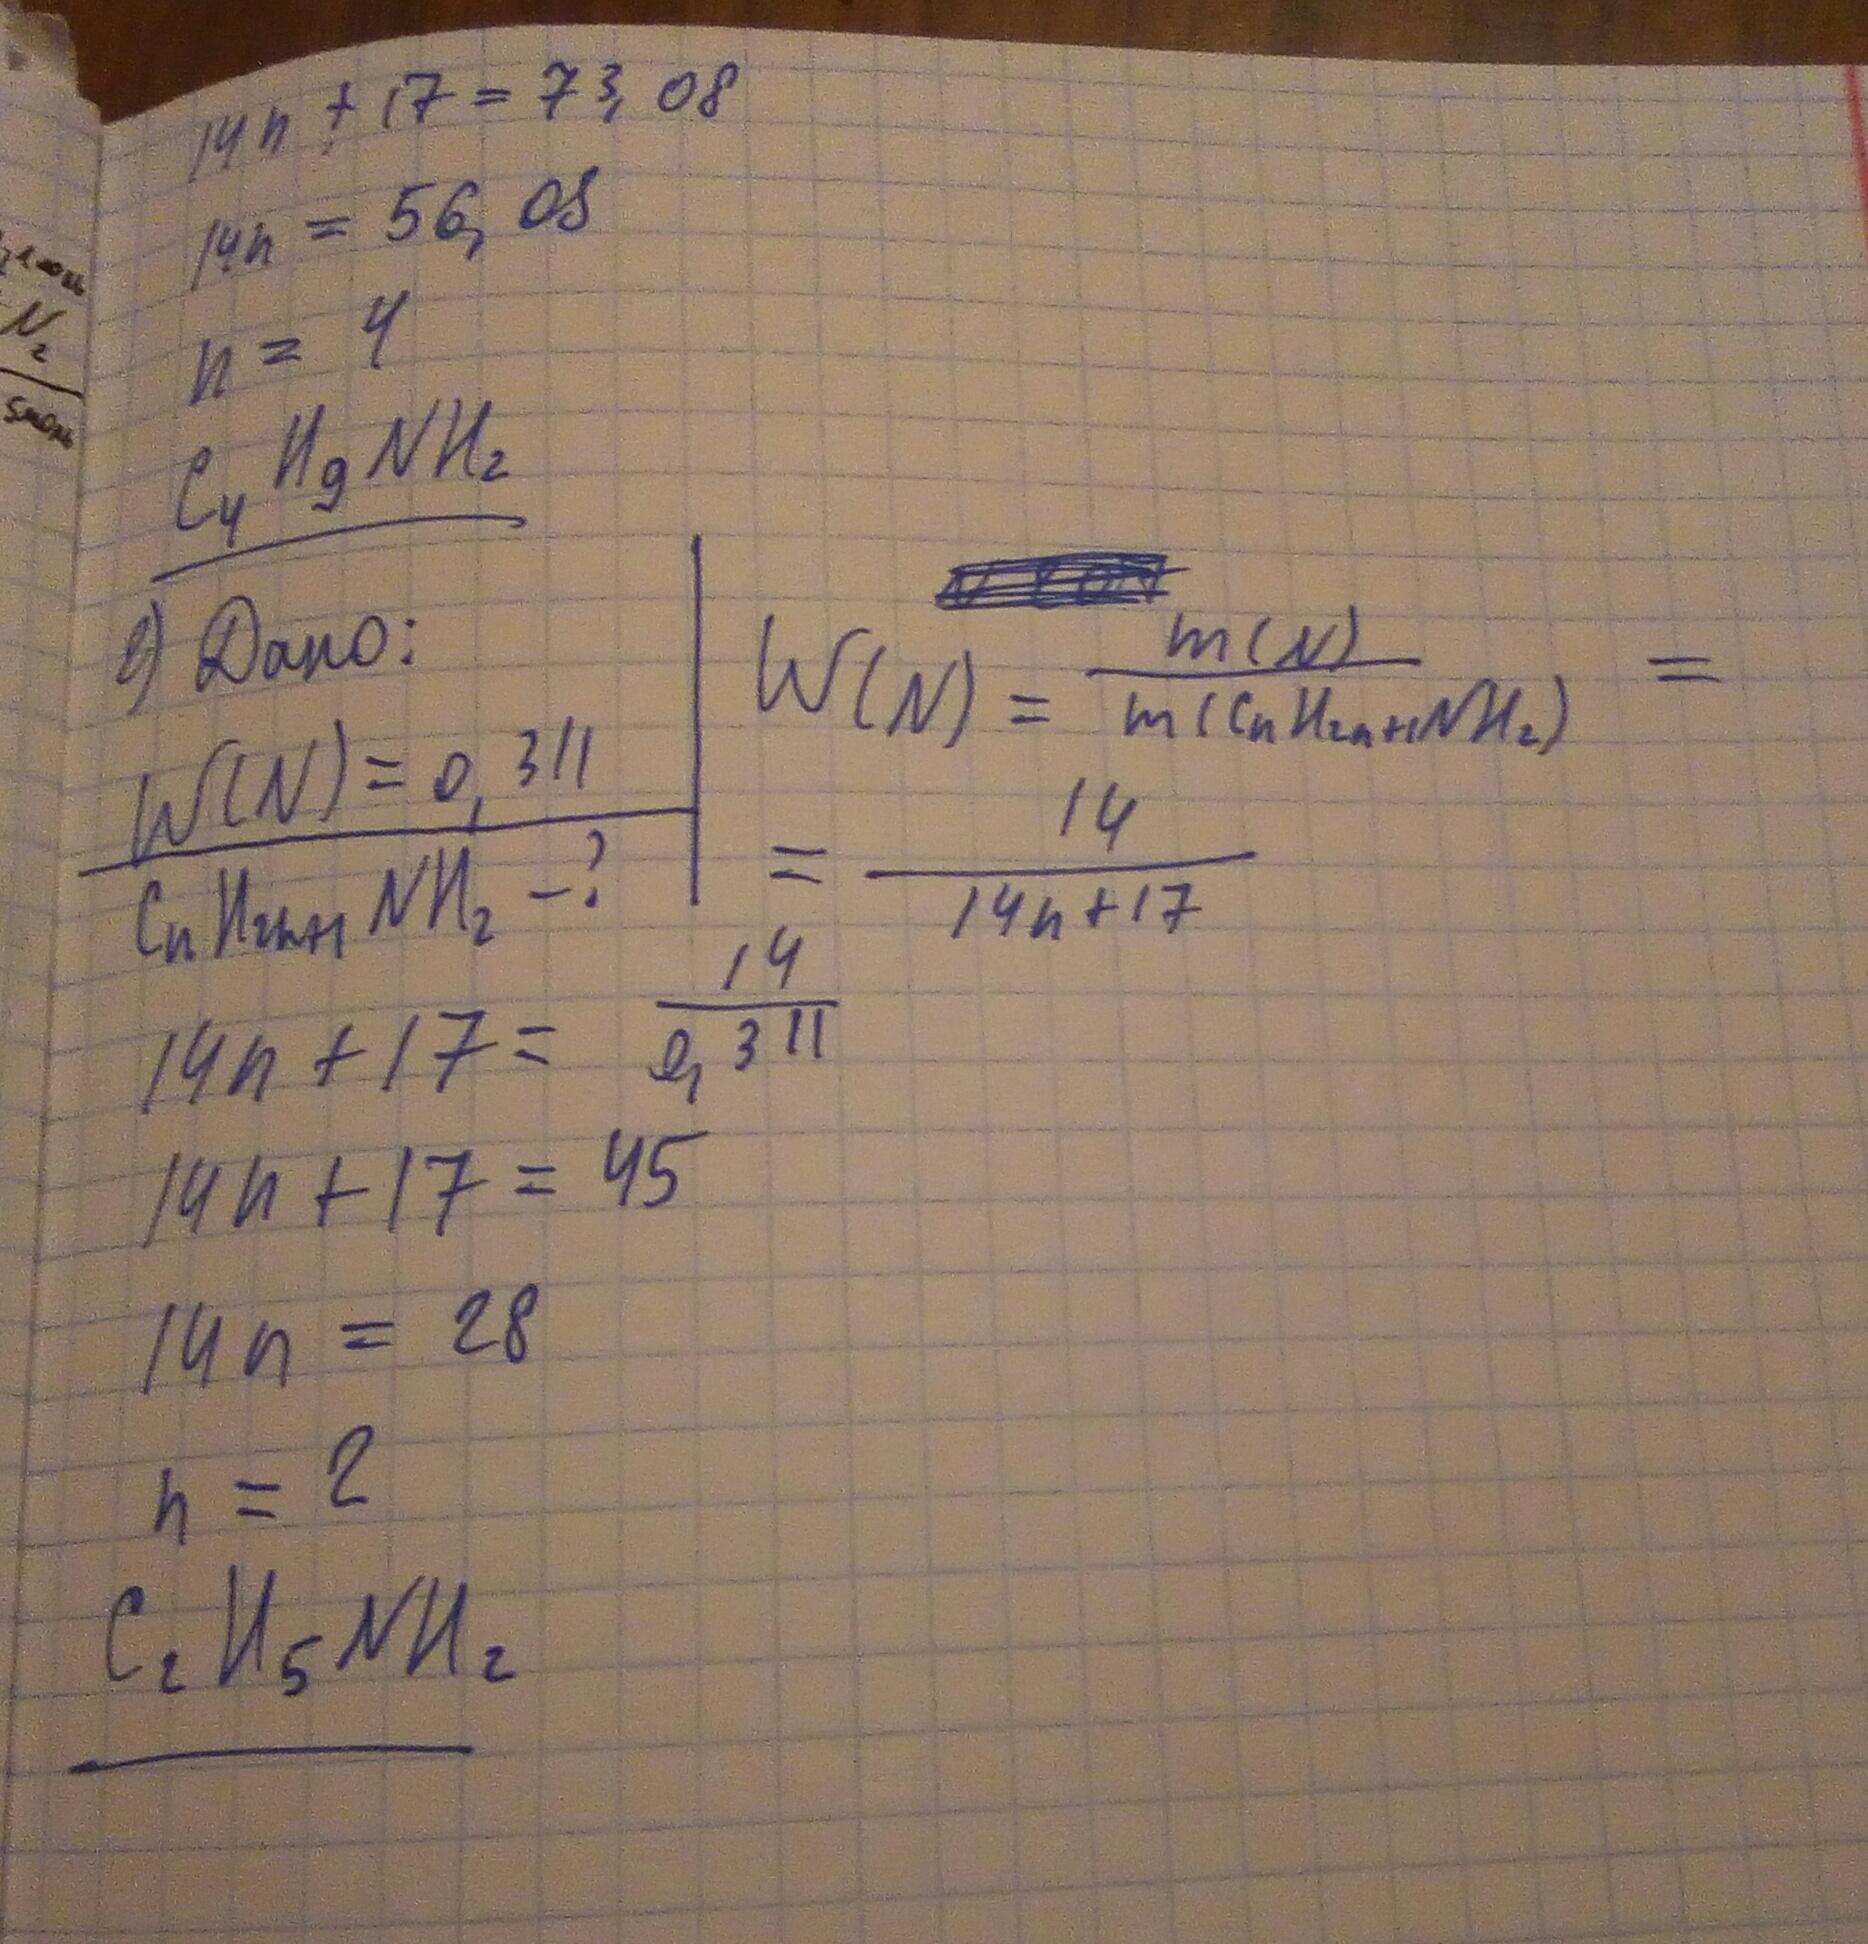 14n + 17 = 73,08
14n = 56,08
n = 4
C₄H₉NH₂
2) Дано:
W(N) = 0,311
CₙH₂ₙ₊₁NH₂ -?
W(N) = m(N) / m(CₙH₂ₙ₊₁NH₂) =
= 14 / 14n+17
14n + 17 = 14 / 0,311
14n + 17 = 45
14n = 28
n = 2
C₂H₅NH₂
N₂
5моль